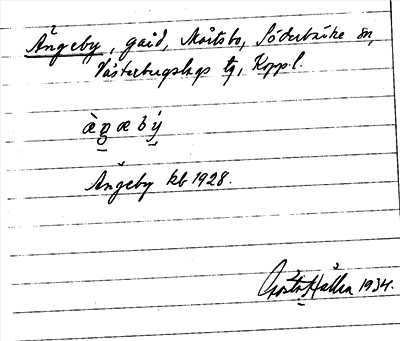 Ängeby, gård, Morsbo, Söderbärke sn,
Västerbergslags tg, Kopp.l.
æ̀ŋæbý
Ängeby kb 1928.
Gösta Hallen 1934.